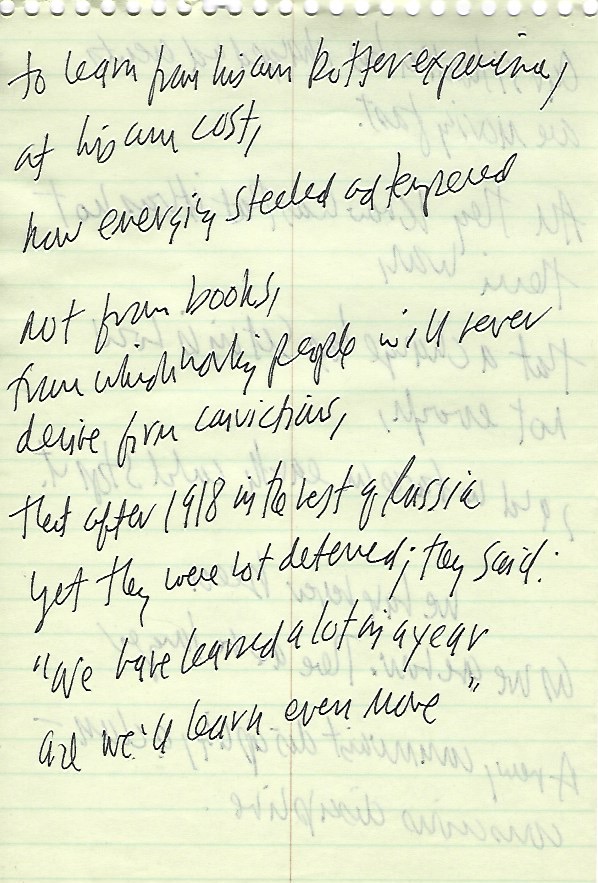 to learn from his own bitter experience,
at his own cost,
how energies steeled and tempered
not from books,
from which working people will never
derive firm convictions,
that after 1918 in the rest of Russia
yet they were not deterred; they said:
"We have learned a lot in a year
and we'll learn even more"